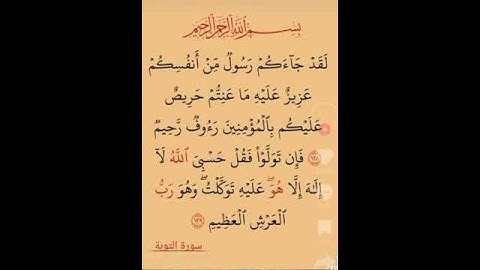 بسم الله الرحمن الرحيم
لَقَدْ جَآءَكُمْ رَسُولٌ مِّنْ أَنفُسِكُمْ
عَزِيزٌ عَلَيْهِ مَا عَنِتُّمْ حَرِيصٌ
عَلَيْكُم بِالْمُؤْمِنِينَ رَءُوفٌ رَّحِيمٌ
١٢٨ فَإِن تَوَلَّوْا۟ فَقُلْ حَسْبِىَ اللَّهُ لَآ
إِلَـٰهَ إِلَّا هُوَ ۖ عَلَيْهِ تَوَكَّلْتُ ۖ وَهُوَ رَبُّ
الْعَرْشِ الْعَظِيمِ ١٢٩
سورة التوبة